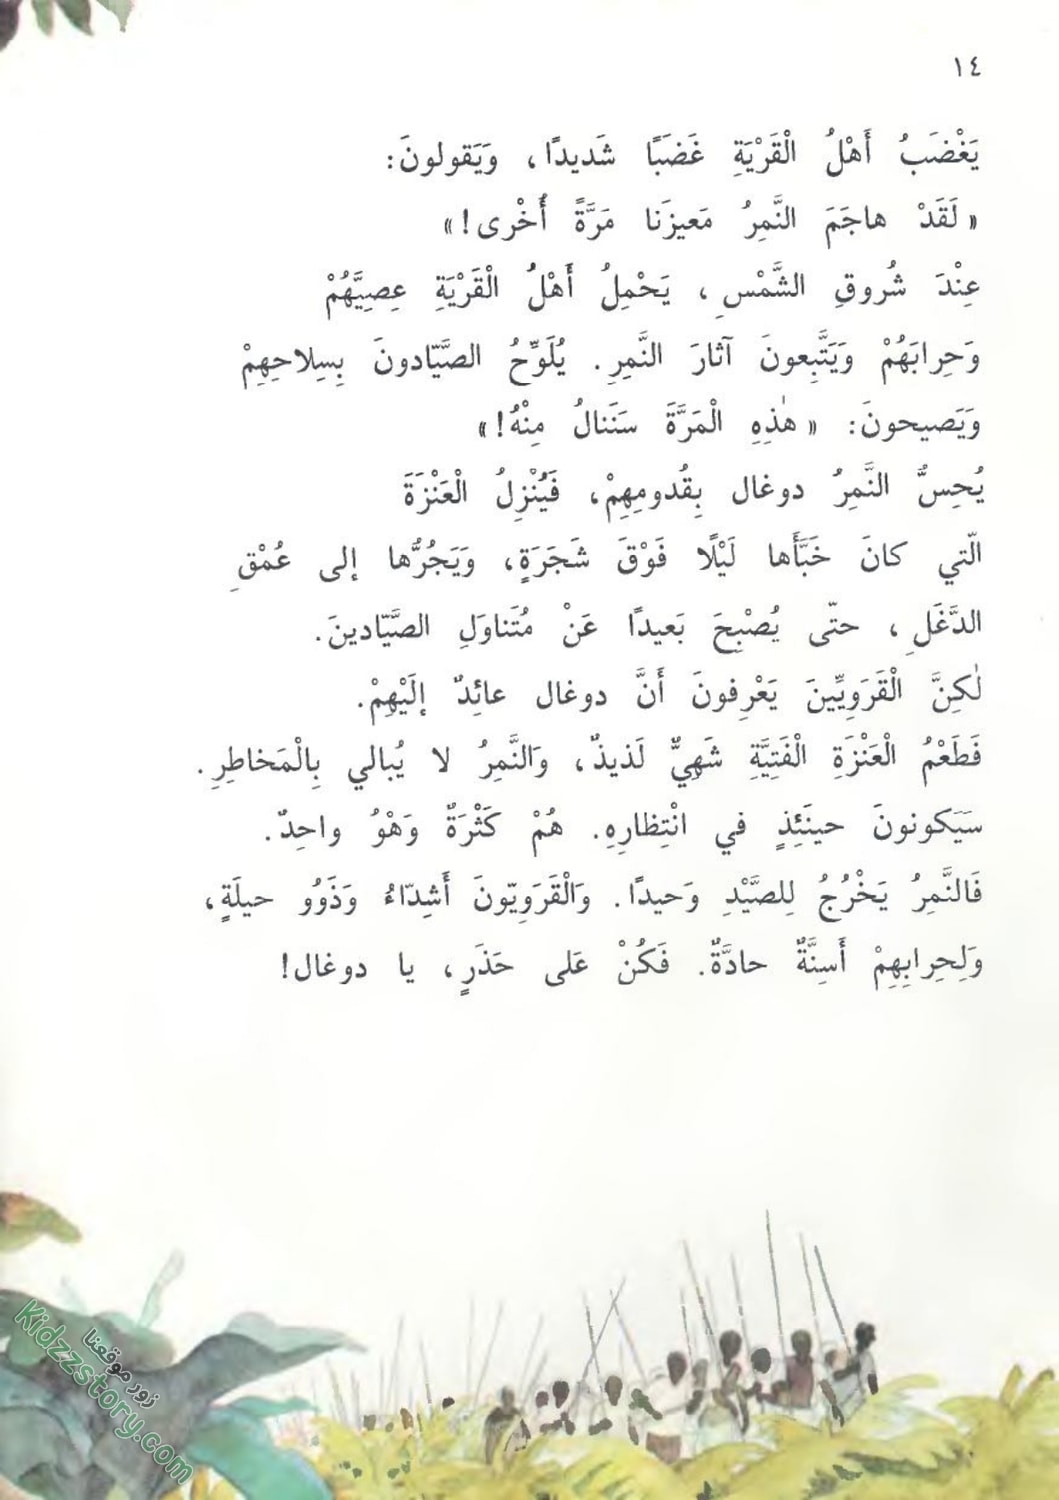 ١٤
يَغْضَبُ أَهْلُ الْقَرْيَةِ غَضَبًا شَديدًا، وَيَقولونَ:
« لَقَدْ هاجَمَ النَّمِرُ مَعيزَنا مَرَّةً أُخْرى! »
عِنْدَ شُروقِ الشَّمْسِ، يَحْمِلُ أَهْلُ الْقَرْيَةِ عِصِيَّهُمْ
وَحِرابَهُمْ وَيَتَّبِعونَ آثارَ النَّمِرِ. يُلَوِّحُ الصَّيّادونَ بِسِلاحِهِمْ
وَيَصيحونَ: « هٰذِهِ الْمَرَّةَ سَنَنالُ مِنْهُ! »
يُحِسُّ النَّمِرُ دوغال بِقُدومِهِمْ، فَيُنْزِلُ الْعَنْزَةَ
الّتي كانَ خَبَّأَها لَيْلًا فَوْقَ شَجَرَةٍ، وَيَجُرُّها إلى عُمْقِ
الدَّغَلِ، حتّى يُصْبِحَ بَعيدًا عَنْ مُتَناوَلِ الصَّيّادينَ.
لٰكِنَّ الْقَرَوِيِّينَ يَعْرِفونَ أَنَّ دوغال عائِدٌ إلَيْهِمْ.
فَطَعْمُ الْعَنْزَةِ الْفَتِيَّةِ شَهِيٌّ لَذيذٌ، وَالنَّمِرُ لا يُبالي بِالْمَخاطِرِ.
سَيَكونونَ حينَئِذٍ في انْتِظارِهِ. هُمْ كَثْرَةٌ وَهْوُ واحِدٌ.
فَالنَّمِرُ يَخْرُجُ لِلصَّيْدِ وَحيدًا. وَالْقَرَوِيّونَ أَشِدّاءُ وَذَوُو حيلَةٍ،
وَلِحِرابِهِمْ أَسِنَّةٌ حادَّةٌ. فَكُنْ عَلى حَذَرٍ، يا دوغال!
زوروا موقعنا
Kidzzstory.com